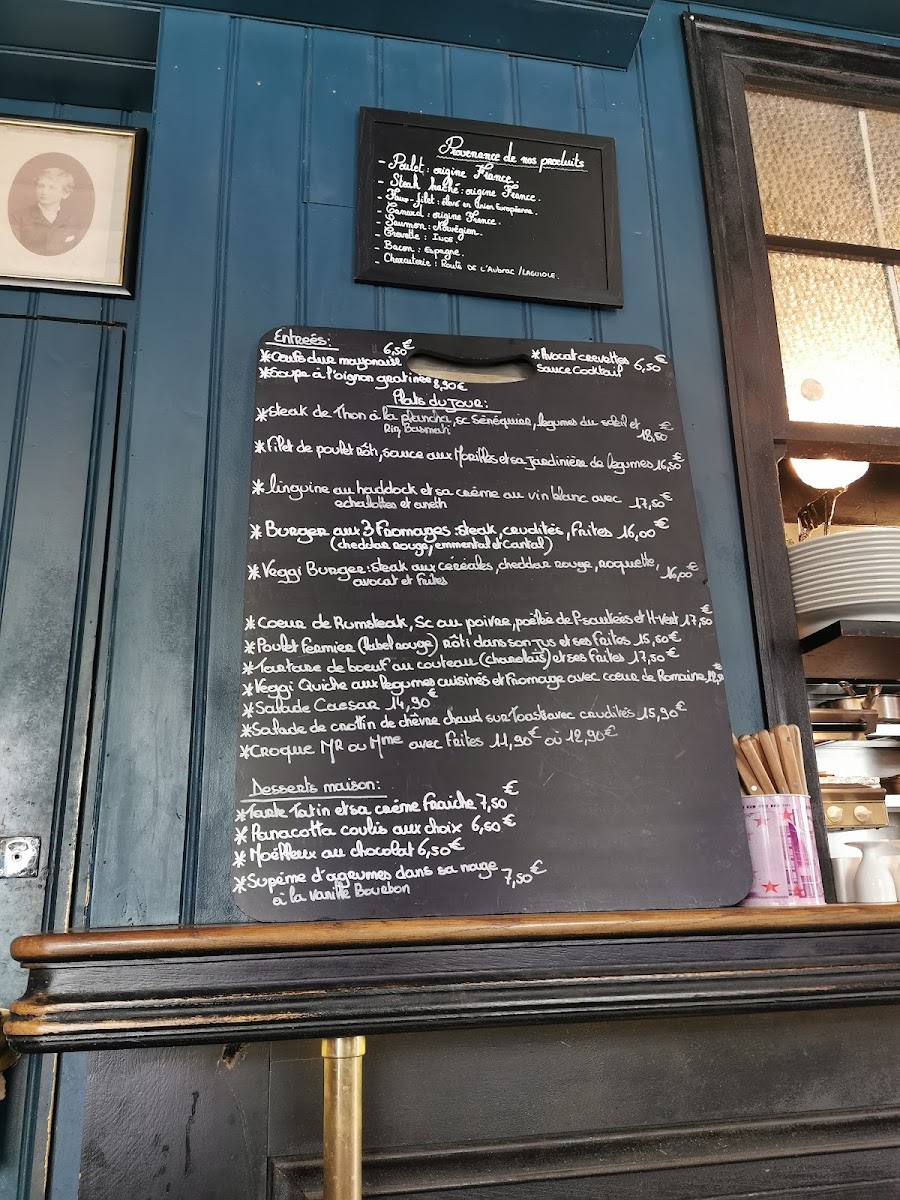 Provenance de nos produits
- Poulet : origine France.
- Steak haché : origine France.
- Faux-filet : élevé en Union Européenne.
- Canard : origine France.
- Saumon : Norvégien.
- Crevette : Inde
- Bacon : Espagne.
- Charcuterie : Route de l'Aubrac / LAGUIOLE.
Entreés :
*Oeufs dur mayonaise 6,50€
*Soupe à l'oignon gratinée 8,90€
*Avocat crevettes
sauce Cocktail 6,50€
Plats du Jour :
*Steak de Thon à la plancha, sc Sénéquier, légumes du soleil et
Riz Basmati 18,50€
*Filet de poulet rôti, sauce aux Morilles et sa Jardinière de légumes 16,50€
*linguine au haddock et sa crème au vin blanc avec
echallottes et aneth 17,50€
*Burger aux 3 Fromages : steak, crudités, Frites 16,00€
(cheddar rouge, emmental et cantal)
*Veggi Burger : steak aux céréales, cheddar rouge, roquette,
avocat et frites 16,00€
*Coeur de Rumsteak, Sc au poivre, poêlée de P-sautées et H-vert 17,50€
*Poulet Fermier (label rouge) rôti dans son jus et ses frites 15,50€
*Tartare de boeuf au couteau (charolais) et ses Frites 17,50€
*Veggi Quiche aux legumes cuisinés et Fromage avec coeur de Romaine
*Salade Caesar 14,90€
*Salade de crottin de chèvre chaud sur Toasts avec crudités 15,90€
*Croque Mr ou Mme avec Frites 11,90€ où 12,90€
Desserts maison :
*Tarte Tatin et sa crème fraiche 7,50€
*Panacotta coulis aux choix 6,50€
*Moëlleux au chocolat 6,50€
*Supème d'agrumes dans sa nage
à la vanille Bourbon 7,50€